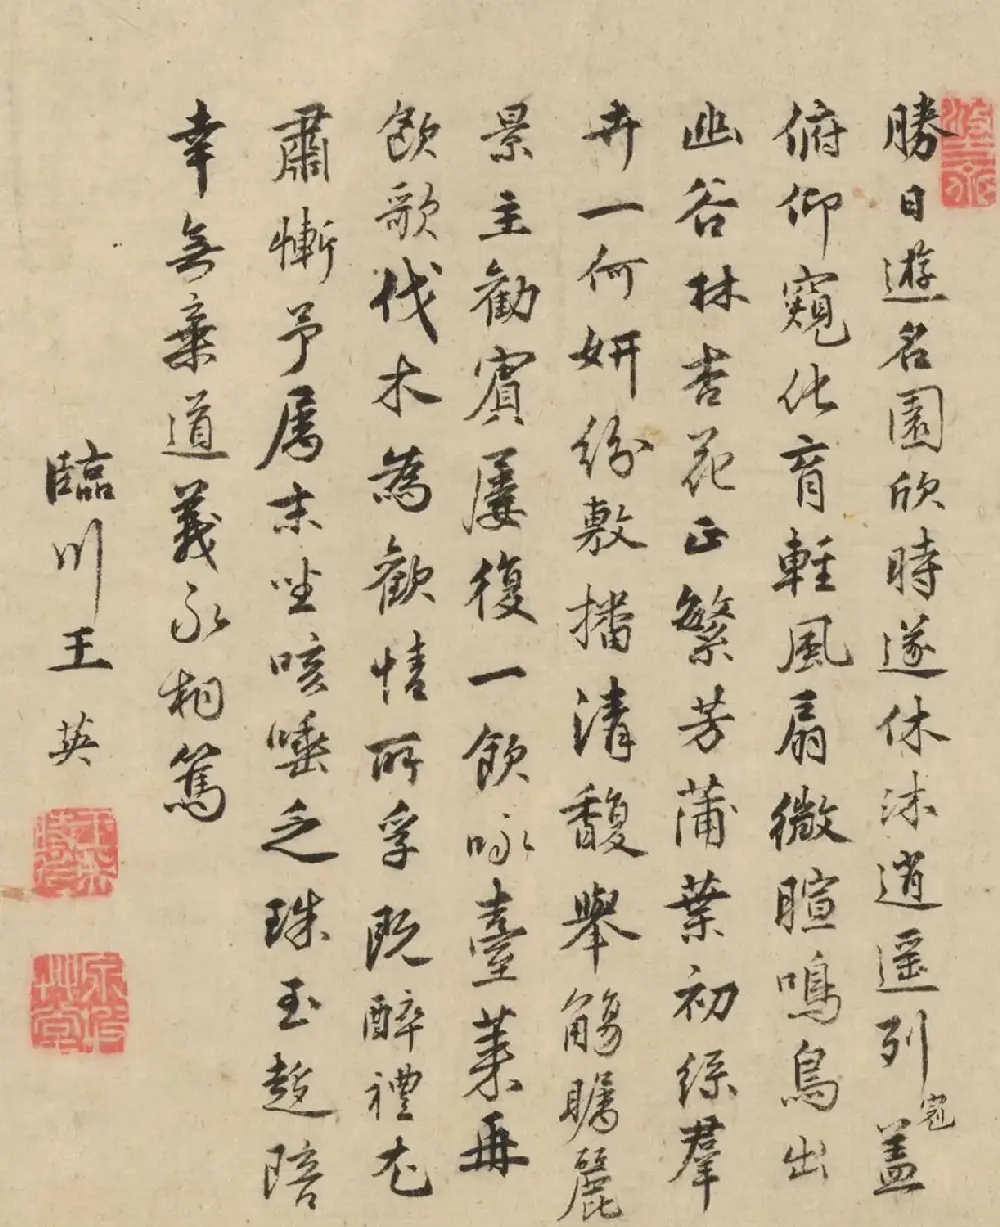 勝日遊名園欣時遂休沐逍遥列冠盖
俯仰窺化育輕風扇微暄鳴鳥出
幽谷林杏花正繁芳蒲葉初綠羣
卉一何妍紛敷播清馥舉觴矚麗
景主勸賓屢復一飲咏臺萊再
飲歌伐木為歡情所孚既醉禮尤
肅慚予屬末坐咳唾乏珠玉趍陪
幸無棄道義永相篤
臨川王英
王英時彥